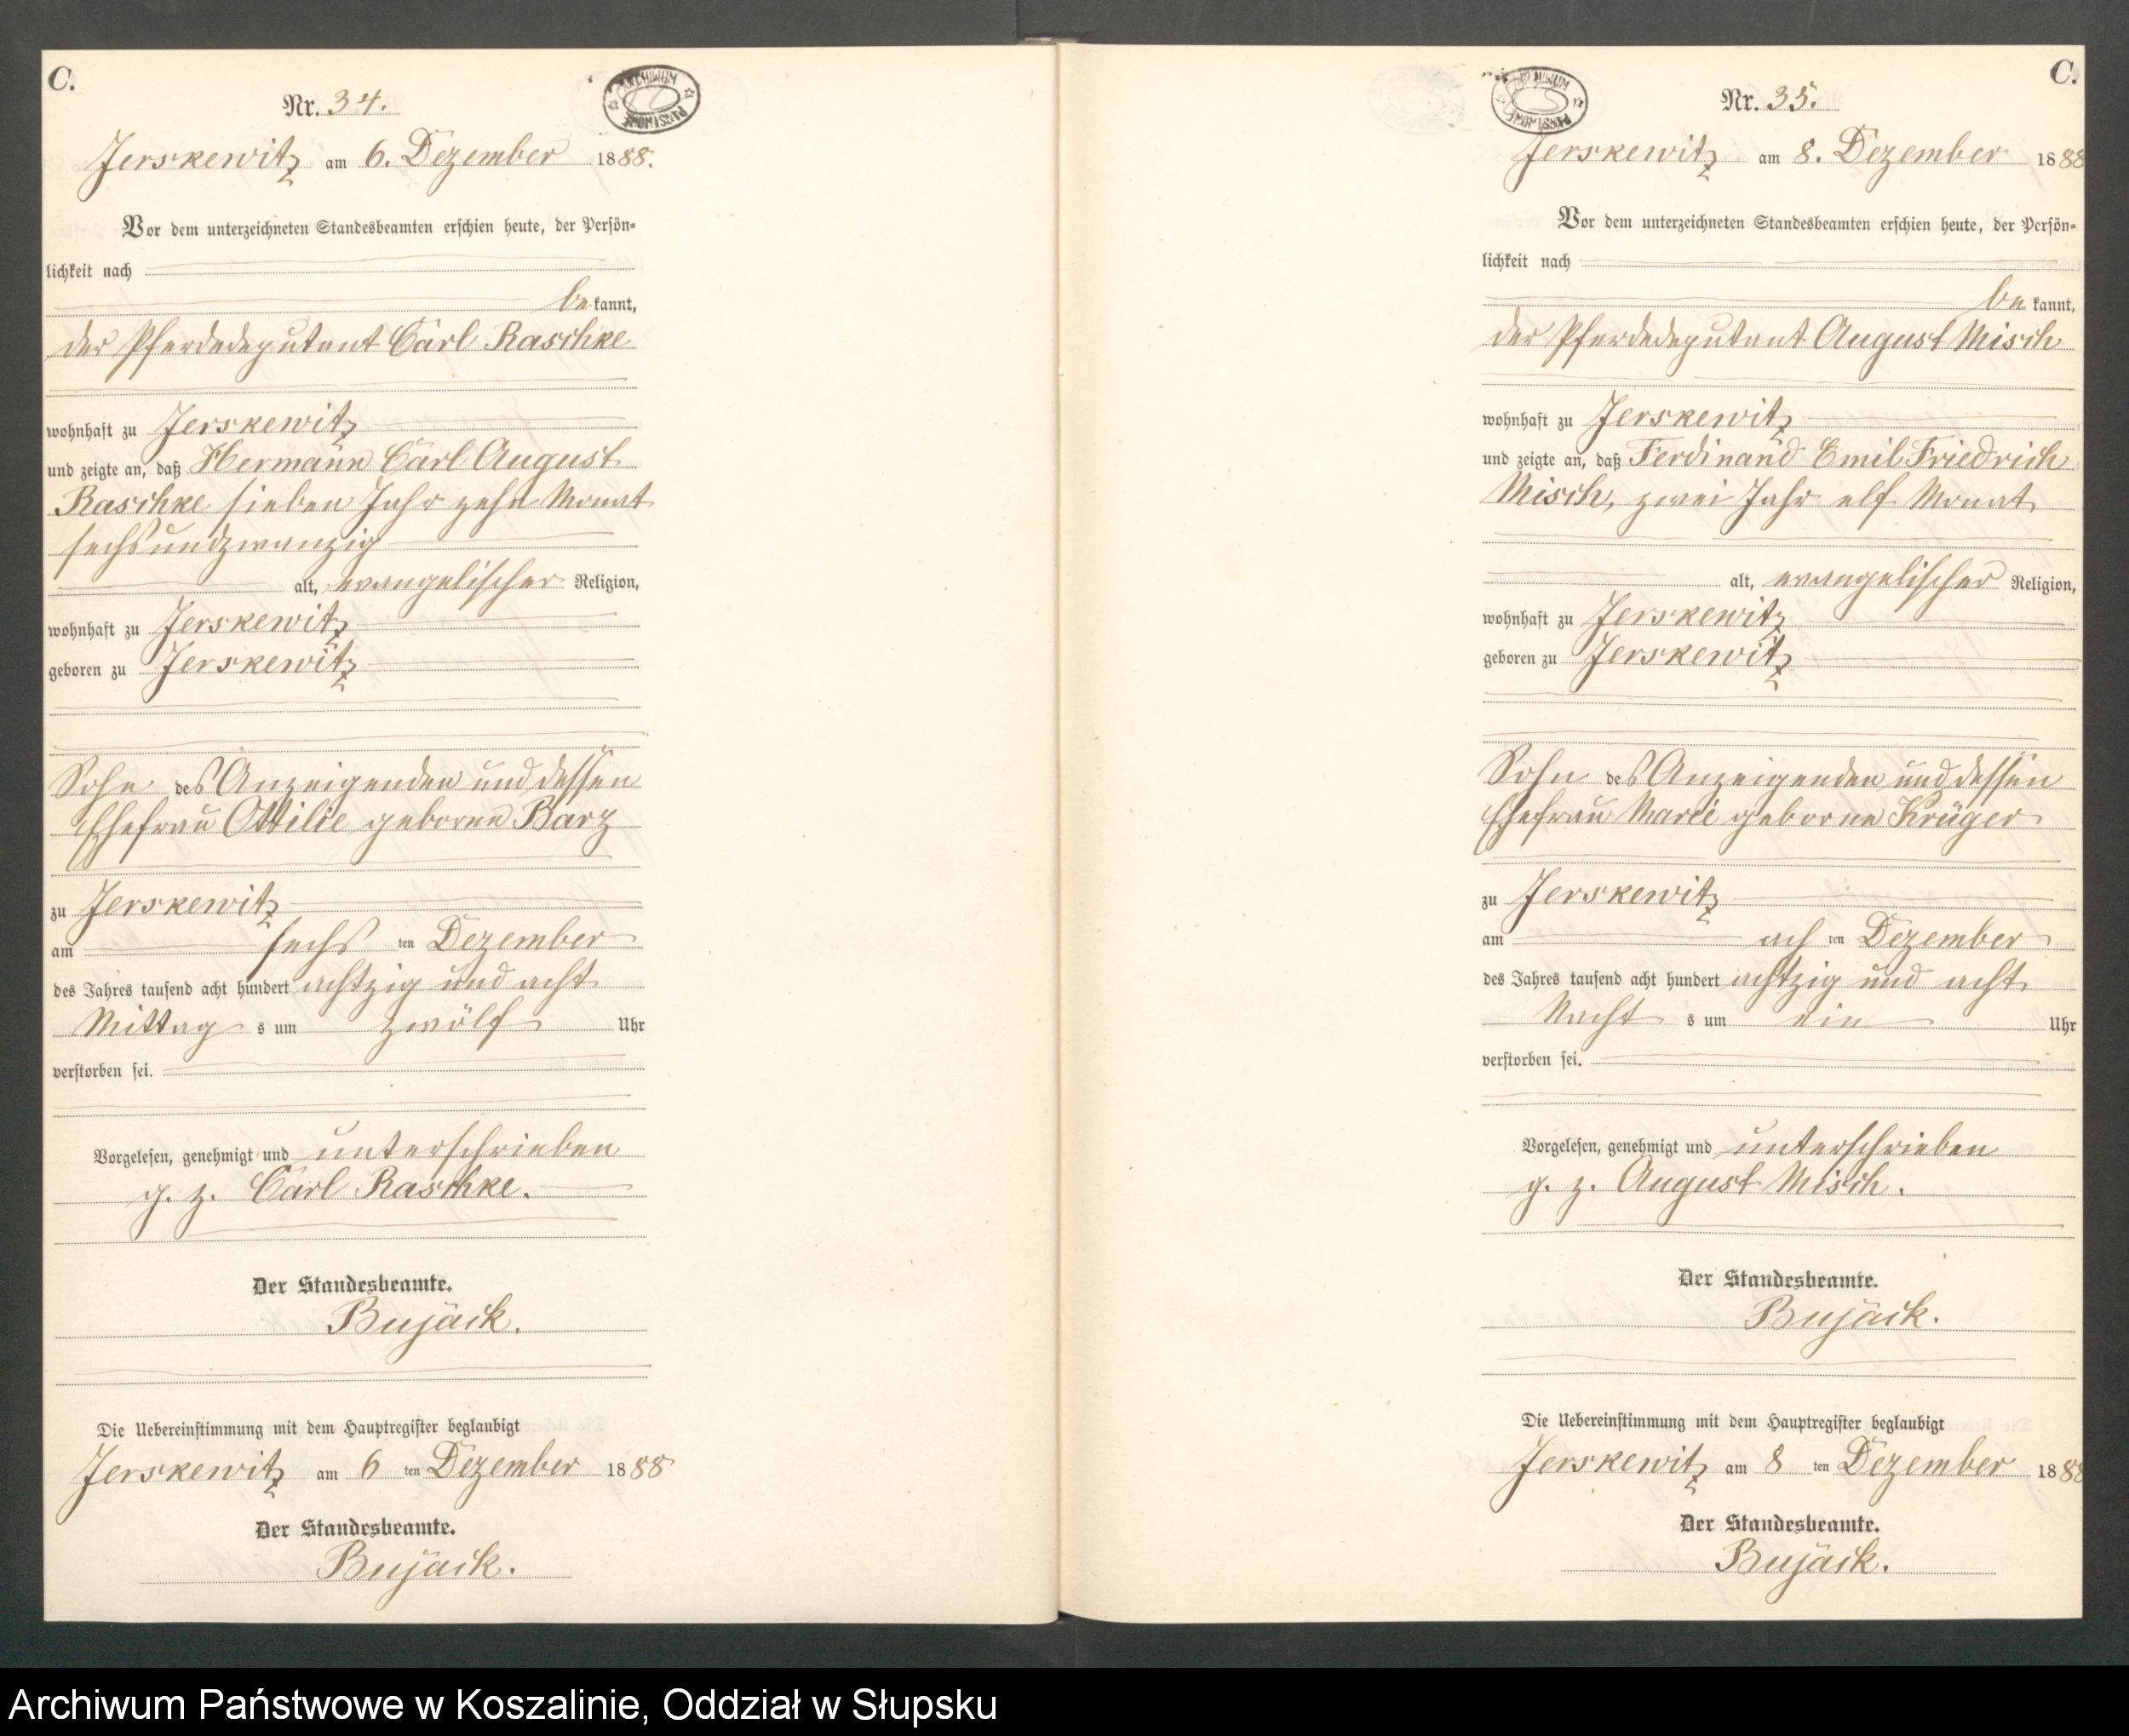 C.
Nr. 34.
ARCHIWUM PAŃSTWOWE
Jerskewitz am 6. Dezember 1888.
Vor dem unterzeichneten Standesbeamten erschien heute, der Persön-
lichkeit nach
be kannt,
der Pferdedeputant Carl Raschke
wohnhaft zu Jerskewitz
und zeigte an, daß Hermann Carl August
Raschke sieben Jahr zehn Monat
sechsundzwanzig
alt, evangelischer Religion,
wohnhaft zu Jerskewitz
geboren zu Jerskewitz
Sohn des Anzeigenden und dessen
Ehefrau Ottilie geborne Barz
zu Jerskewitz
am sechs ten Dezember
des Jahres tausend acht hundert achtzig und acht
Mittag s um zwölf Uhr
verstorben sei.
Vorgelesen, genehmigt und unterschrieben
g. z. Carl Raschke.
Der Standesbeamte.
Bujack.
Die Uebereinstimmung mit dem Hauptregister beglaubigt
Jerskewitz am 6 ten Dezember 1888
Der Standesbeamte.
Bujack.
C.
Nr. 35.
ARCHIWUM PAŃSTWOWE
Jerskewitz am 8. Dezember 1888
Vor dem unterzeichneten Standesbeamten erschien heute, der Persön-
lichkeit nach
be kannt,
der Pferdedeputant August Misch
wohnhaft zu Jerskewitz
und zeigte an, daß Ferdinand Emil Friedrich
Misch, zwei Jahr elf Monat
alt, evangelischer Religion,
wohnhaft zu Jerskewitz
geboren zu Jerskewitz
Sohn des Anzeigenden und dessen
Ehefrau Marie geborne Krüger
zu Jerskewitz
am ach ten Dezember
des Jahres tausend acht hundert achtzig und acht
Nacht s um ein Uhr
verstorben sei.
Vorgelesen, genehmigt und unterschrieben
g. z. August Misch.
Der Standesbeamte.
Bujack.
Die Uebereinstimmung mit dem Hauptregister beglaubigt
Jerskewitz am 8 ten Dezember 1888
Der Standesbeamte.
Bujack.
Archiwum Państwowe w Koszalinie, Oddział w Słupsku